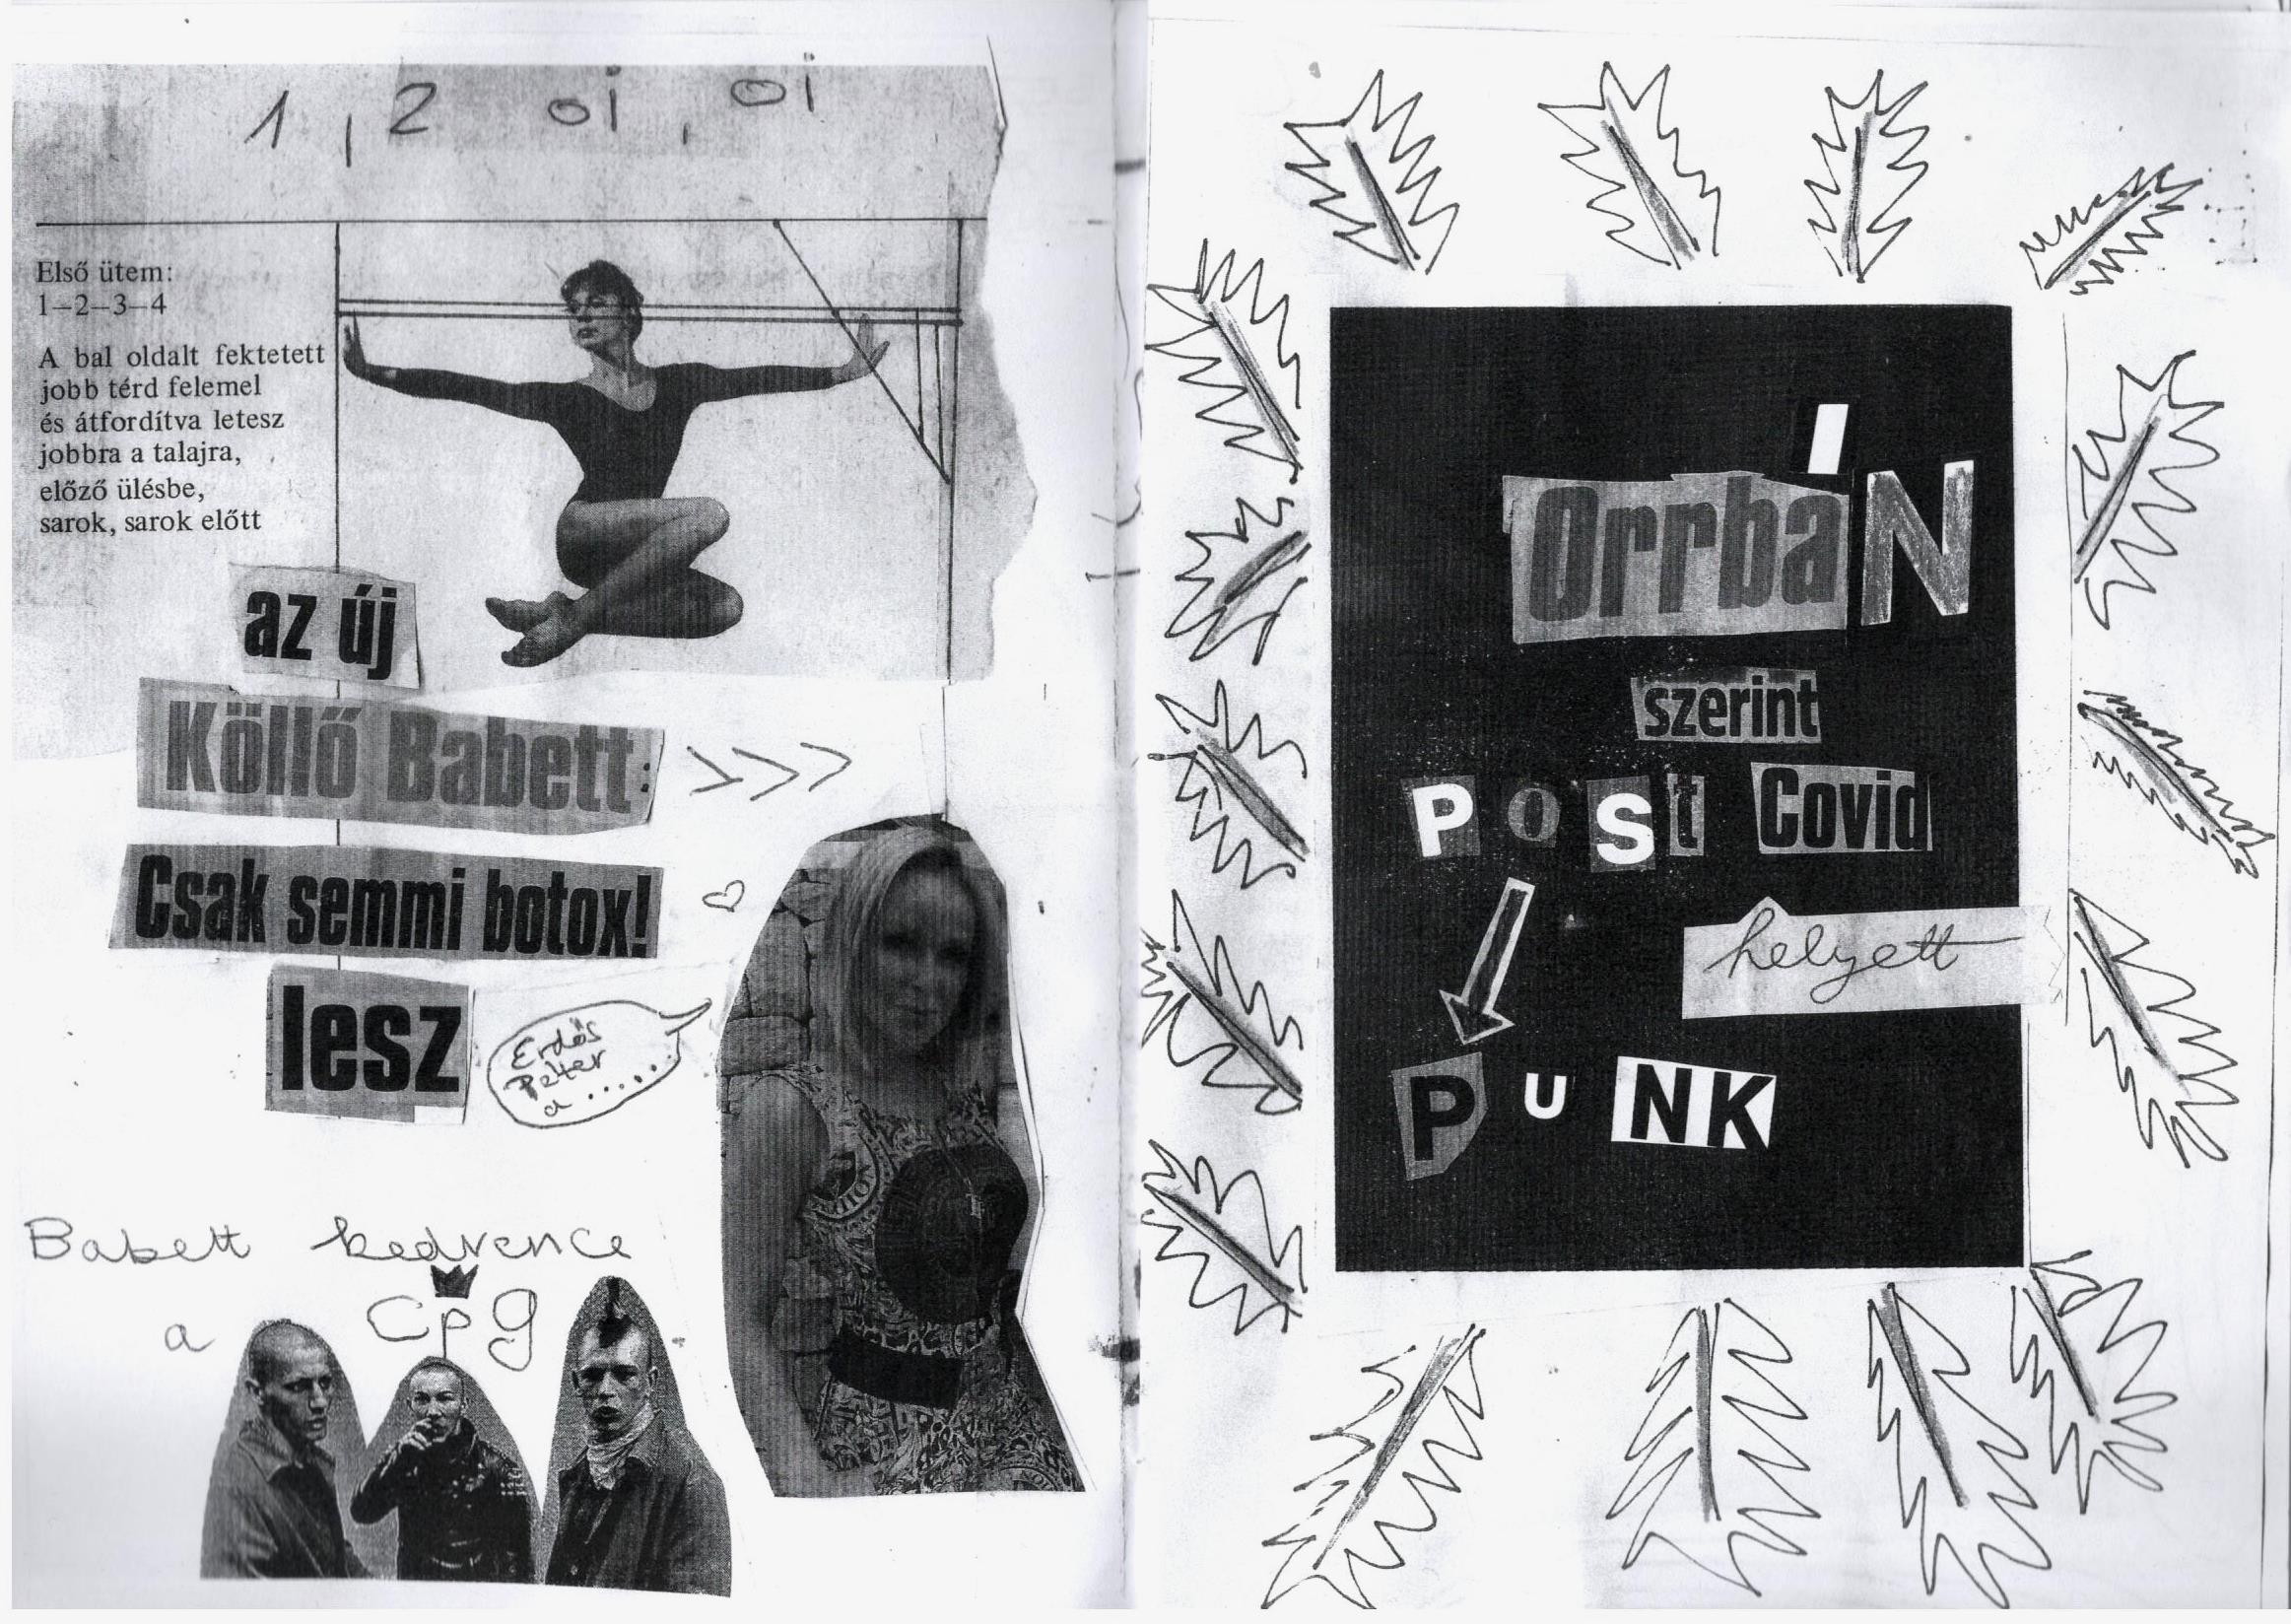 1, 2 oi, oi
Első ütem:
1–2–3–4
A bal oldalt fektetett
jobb térd felemel
és átfordítva letesz
jobbra a talajra,
előző ülésbe,
sarok, sarok előtt
az új
Köllő Babett:
Csak semmi botox!
lesz
Erdős
Péter
a......
Babett kedvence
a Cpg
OrrbáN
szerint
Post Covid
helyett
PuNK